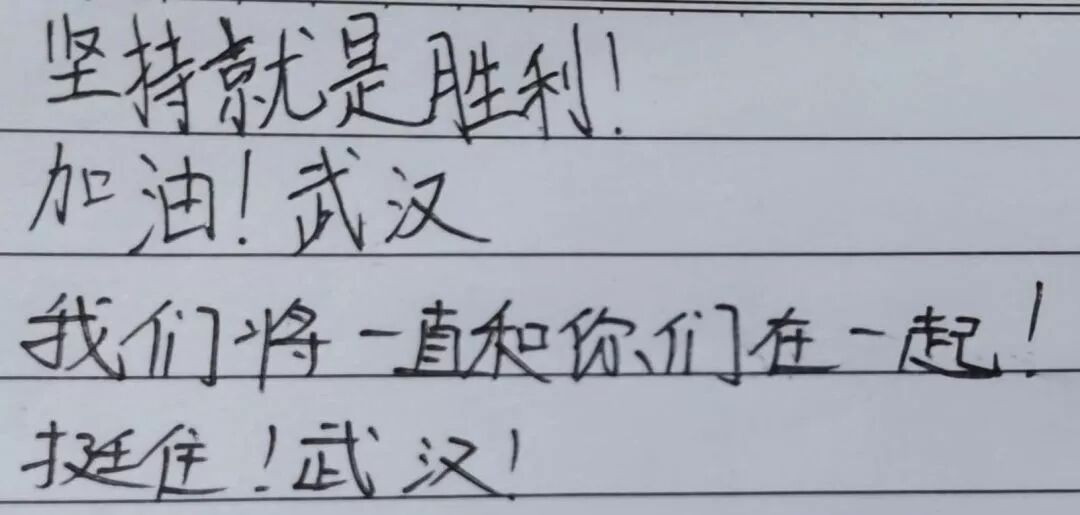 坚持就是胜利!
加油!武汉
我们将一直和你们在一起!
挺住!武汉!